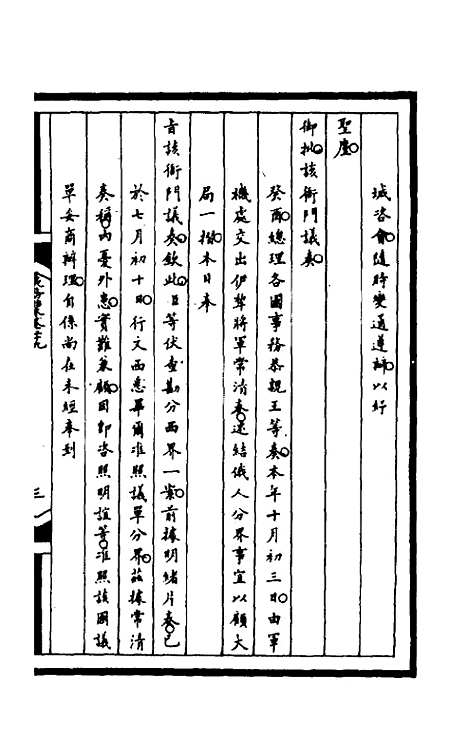 域咨會隨時變通遵辦以紓
聖廑
御批該衙門議奏
癸酉總理各國事務恭親王等奏本年十月初三日由軍
機處交出伊犂將軍常清奏速結俄人分界事宜以顧大
局一摺本日奉
旨該衙門議奏欽此臣等伏查勘分西界一案前據明緒片奏已
於七月初十日行文西悉畢爾准照議單分界茲據常清
奏稱內憂外患實難兼顧因即咨照明誼等准照該國議
單妥商辦理自係尚在未經奉到
三